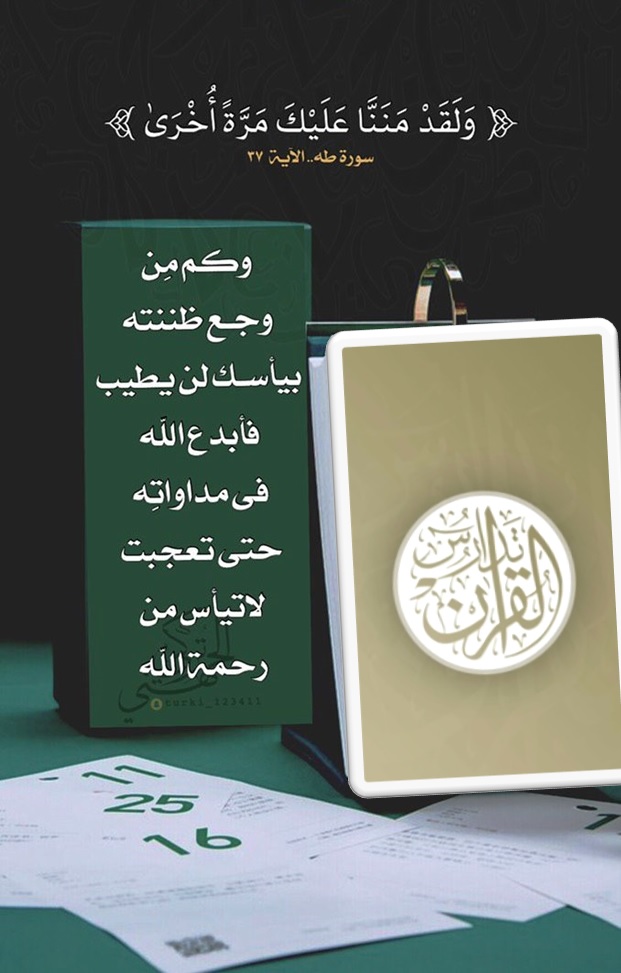 ﴿ وَلَقَدْ مَنَنَّا عَلَيْكَ مَرَّةً أُخْرَىٰ ﴾
سورة طه.. الآية ٣٧
وكم مِن
وجع ظننته
بيأسك لن يطيب
فأبدع الله
فى مداواتِه
حتى تعجبت
لا تيأس من
رحمة الله
torki_123411
تَدَارُسُ
القرآن
11
25
16